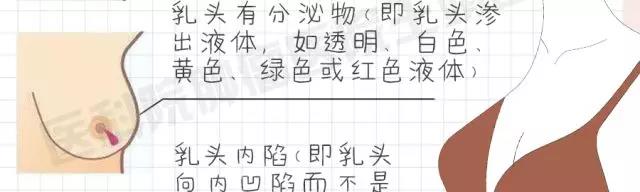 乳头有分泌物(即乳头渗
出液体，如透明、白色、
黄色、绿色或红色液体)
乳头内陷(即乳头
向内凹陷而不是